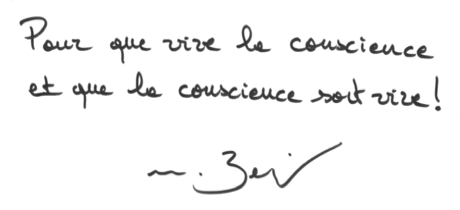 Pour que vive la conscience
et que la conscience soit vive !